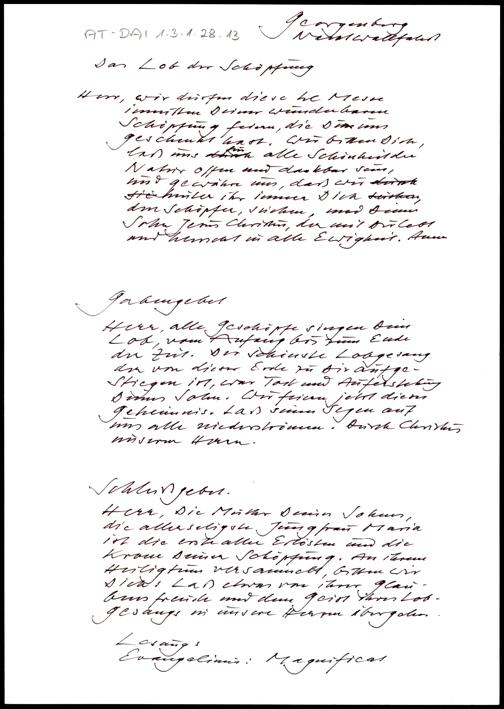 AT-DAI 1.3.1.28.13
Georgenberg
Nachtwallfahrt
Das Lob der Schöpfung
Herr, wir dürfen diese hl Messe
inmitten Deiner wunderbaren
Schöpfung feiern, die Du uns
geschenkt hast. Wir bitten Dich,
laß uns für alle Schönheit der
Natur offen und dankbar sein,
und gewähre uns, daß wir durch
sie hinter ihr immer Dich suchen,
den Schöpfer, suchen, und Deinen
Sohn Jesus Christus, der mit Dir lebt
und herrscht in alle Ewigkeit. Amen
Gabengebet
Herr, alle Geschöpfe singen Dein
Lob, vom Anfang bis zum Ende
der Zeit. Der schönste Lobgesang
der von dieser Erde zu Dir aufge-
stiegen ist, war Tod und Auferstehung
Deines Sohn. Wir feiern jetzt dieses
Geheimnis. Laß seinen Segen auf
uns alle niederströmen. Durch Christus
unseren Herrn.
Schlußgebet.
Herr, Die Mutter Deines Sohnes,
die allerseligste Jungfrau Maria
ist die erste aller Erlösten und die
Krone Deiner Schöpfung. An ihrem
Heiligtum versammelt bitten wir
Dich: Laß etwas von ihrer Glau-
bensfreude und dem Geist ihres Lob-
gesangs in unsere Herzen übergehen.
Lesung:
Evangelium: Magnificat